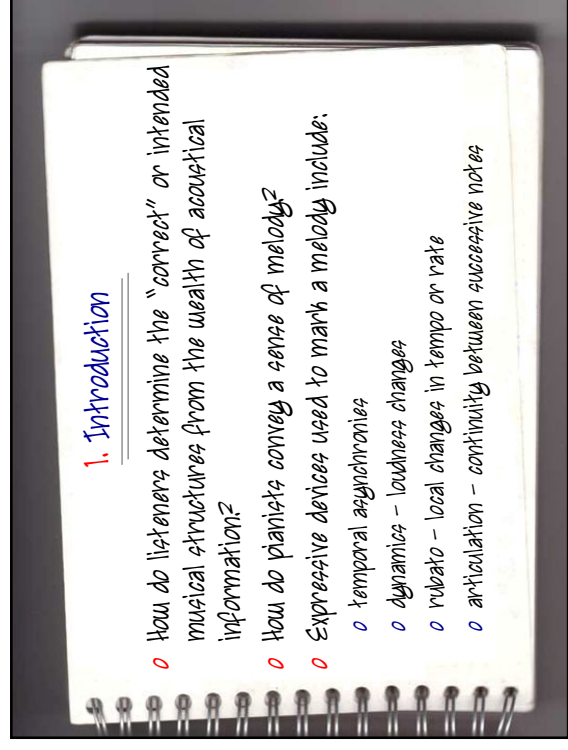 1. Introduction
o How do listeners determine the “correct” or intended
musical structures from the wealth of acoustical
information?
o How do pianists convey a sense of melody?
o Expressive devices used to mark a melody include:
o temporal asynchronies
o dynamics – loudness changes
o rubato – local changes in tempo or rate
o articulation – continuity between successive notes